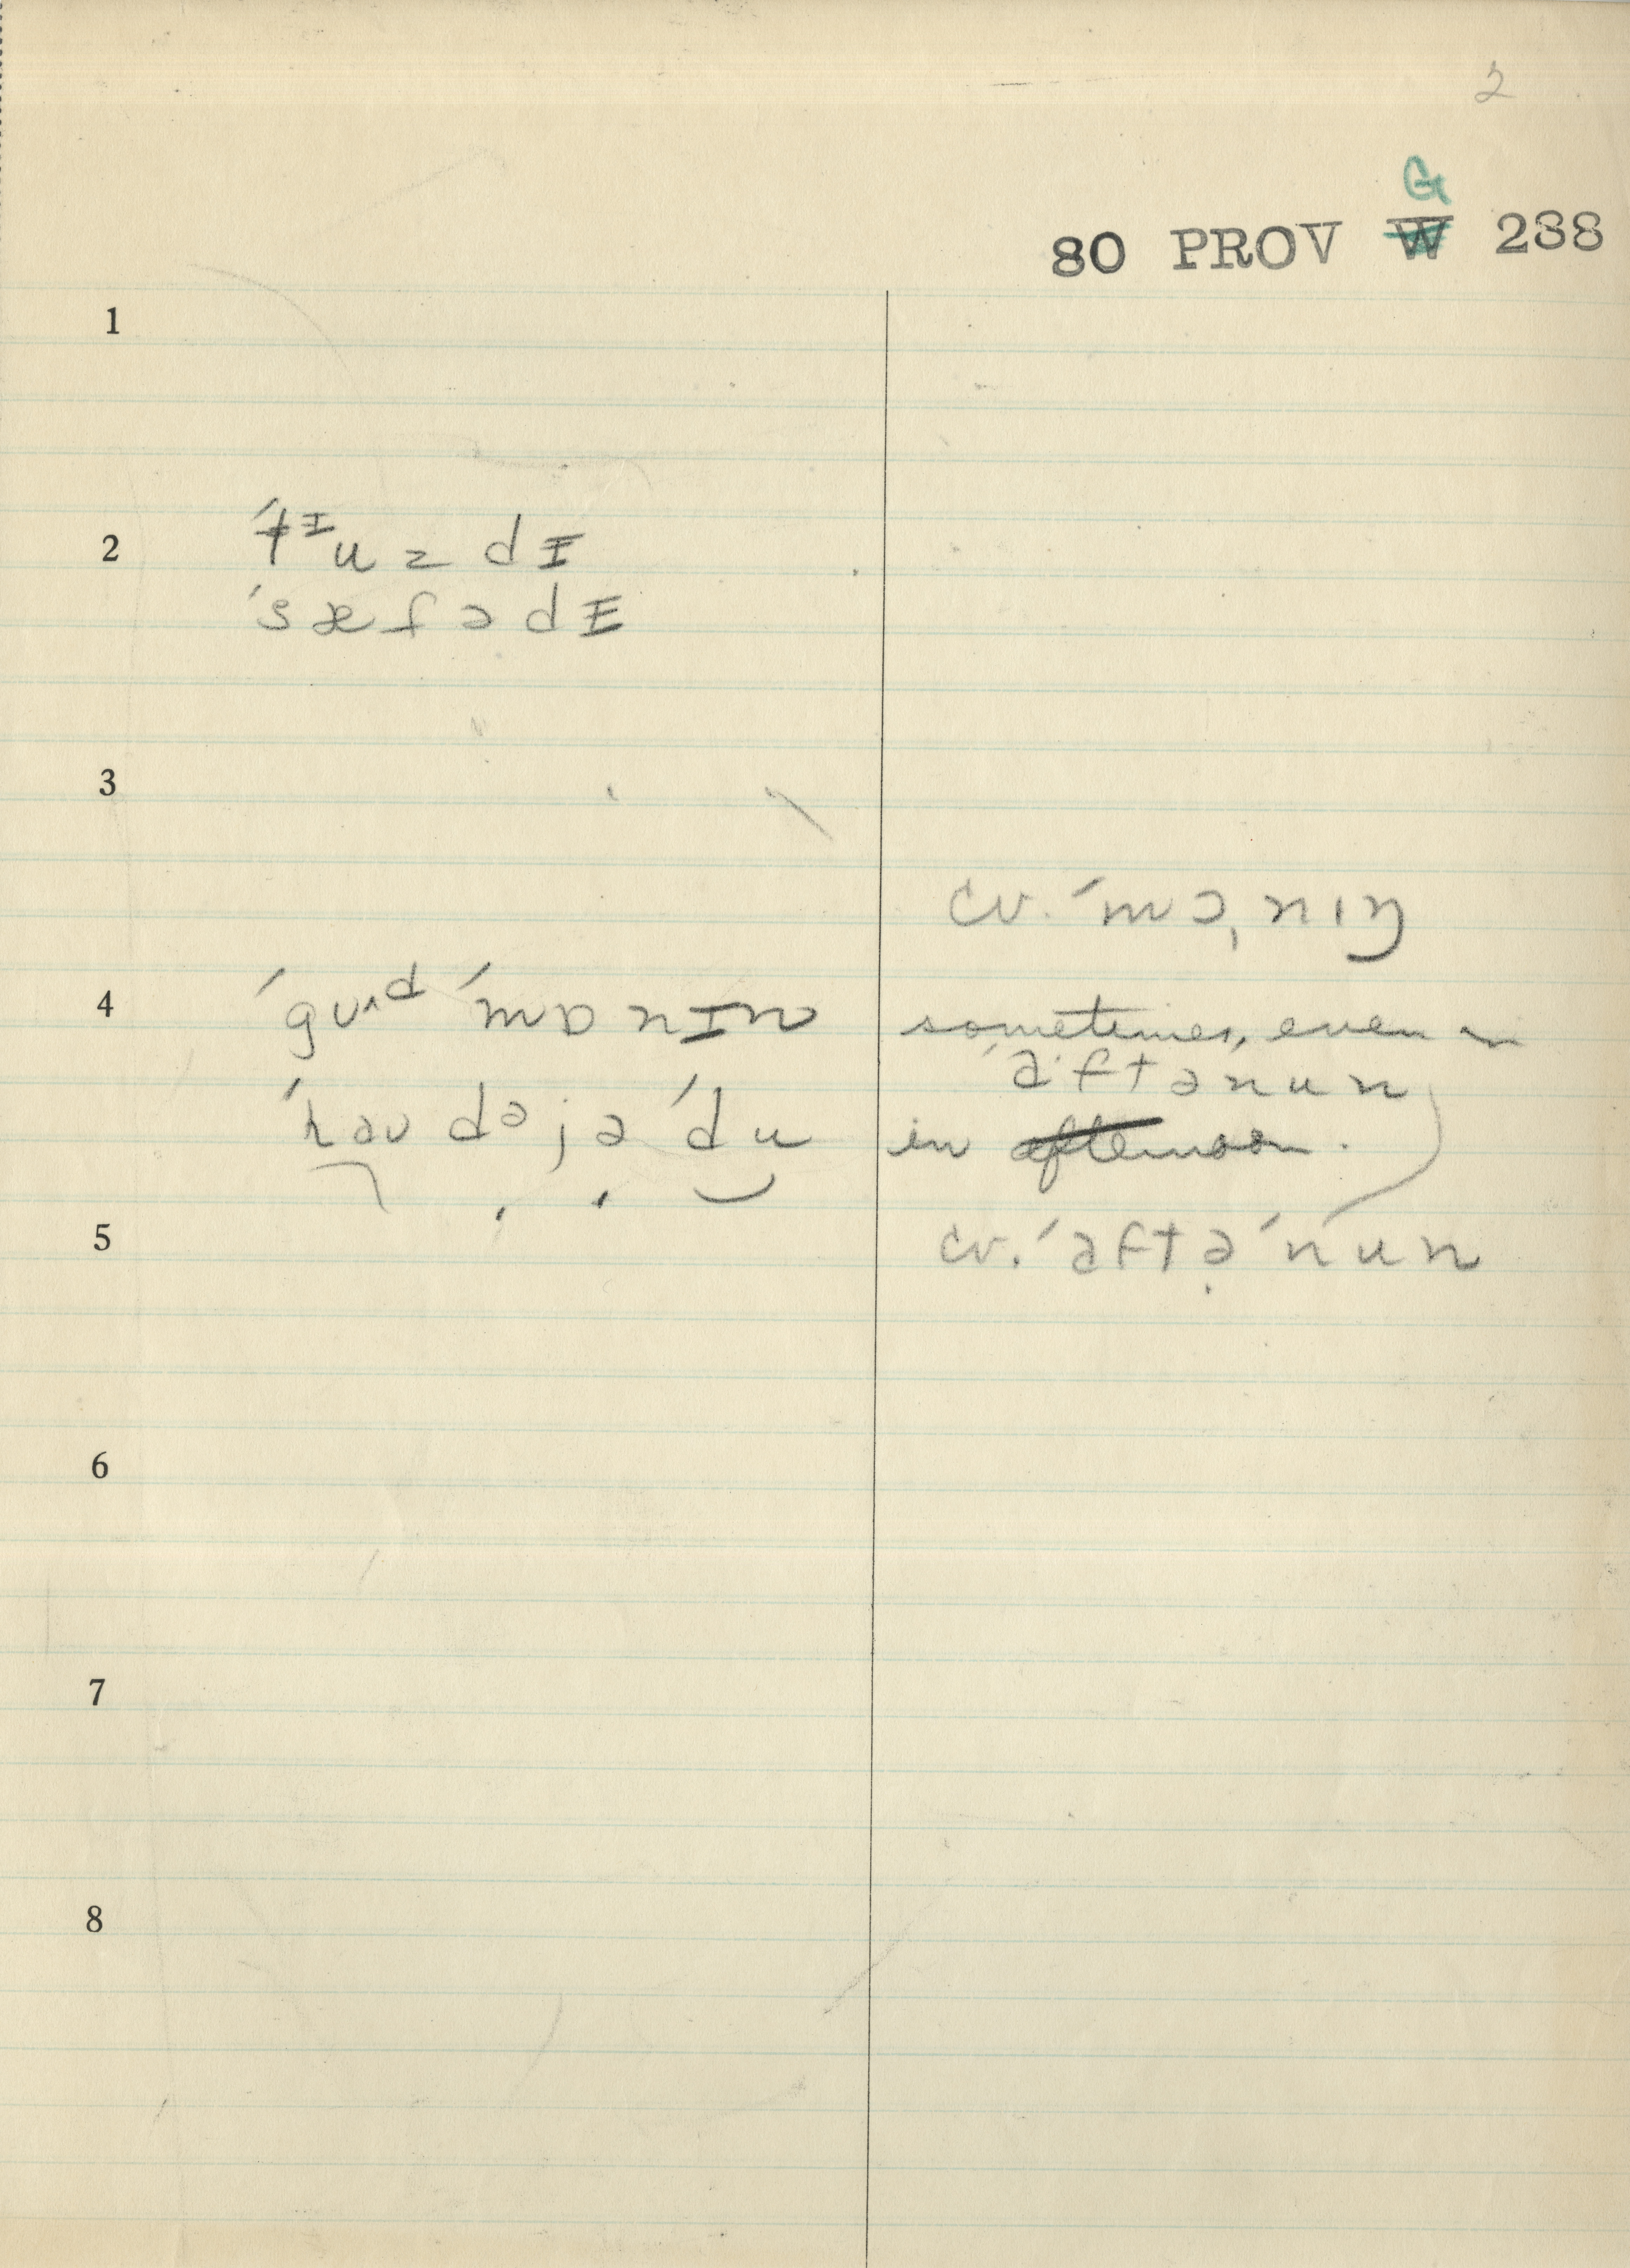 2
G
80 PROV W 238
1
2 ´tᶦuzdɪ
´sæfədɪ
3
cv. ´mɔˌnɪŋ
4 ´gʊ˄ᵈ ´mɒnɪn sometimes, even
´aftənun
´haʊ dᵊjə ´du in afternoon.
5 cv. ´aftə´nun
6
7
8